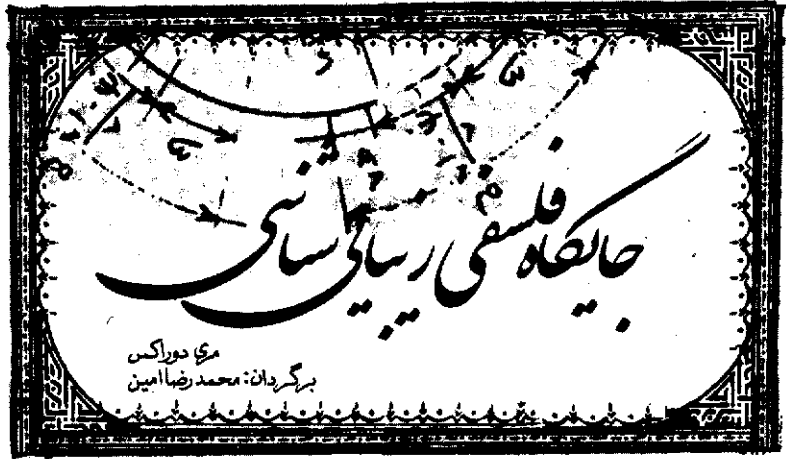 جایگاه فلسفی زیبائی شناسی
مری دوراکس
برگردان: محمدرضا امین